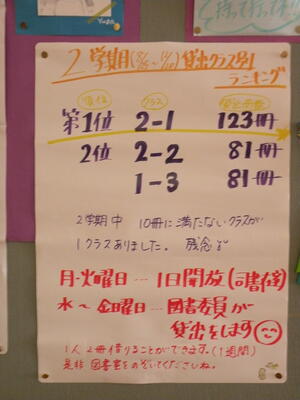 2学期(8/25~11/10)貸出クラス別
ランキング
順位 クラス 貸出冊数
第1位 2-1 123冊
2位 2-2 81冊
1-3 81冊
2学期中 10冊に満たないクラスが
1クラスありました。残念
月・火曜日…1日開放(司書在室)
水~金曜日…図書委員が
貸出をします
1人2冊借りることができます。(1週間)
是非図書室をのぞいてくださいね。